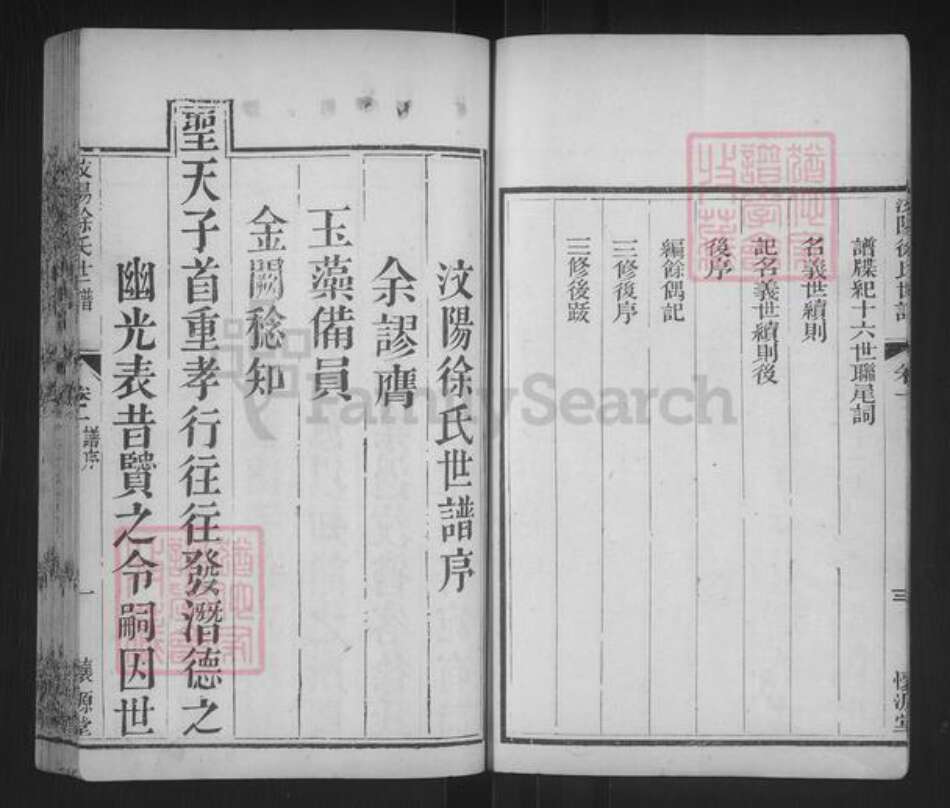 汶陽徐氏世譜
卷一
三
懷源堂
譜牒紀十六世聯尾詞
名義世續則
記名義世續則後
後序
編餘偶記
三修後序
三修後跋
汶陽徐氏世譜序
余謬膺
玉藻備員
金闕稔知
聖天子首重孝行往往發潛德之
幽光表昔賢之令嗣因世
汶陽徐氏世譜
譜序
一
懷源堂
FamilySearch